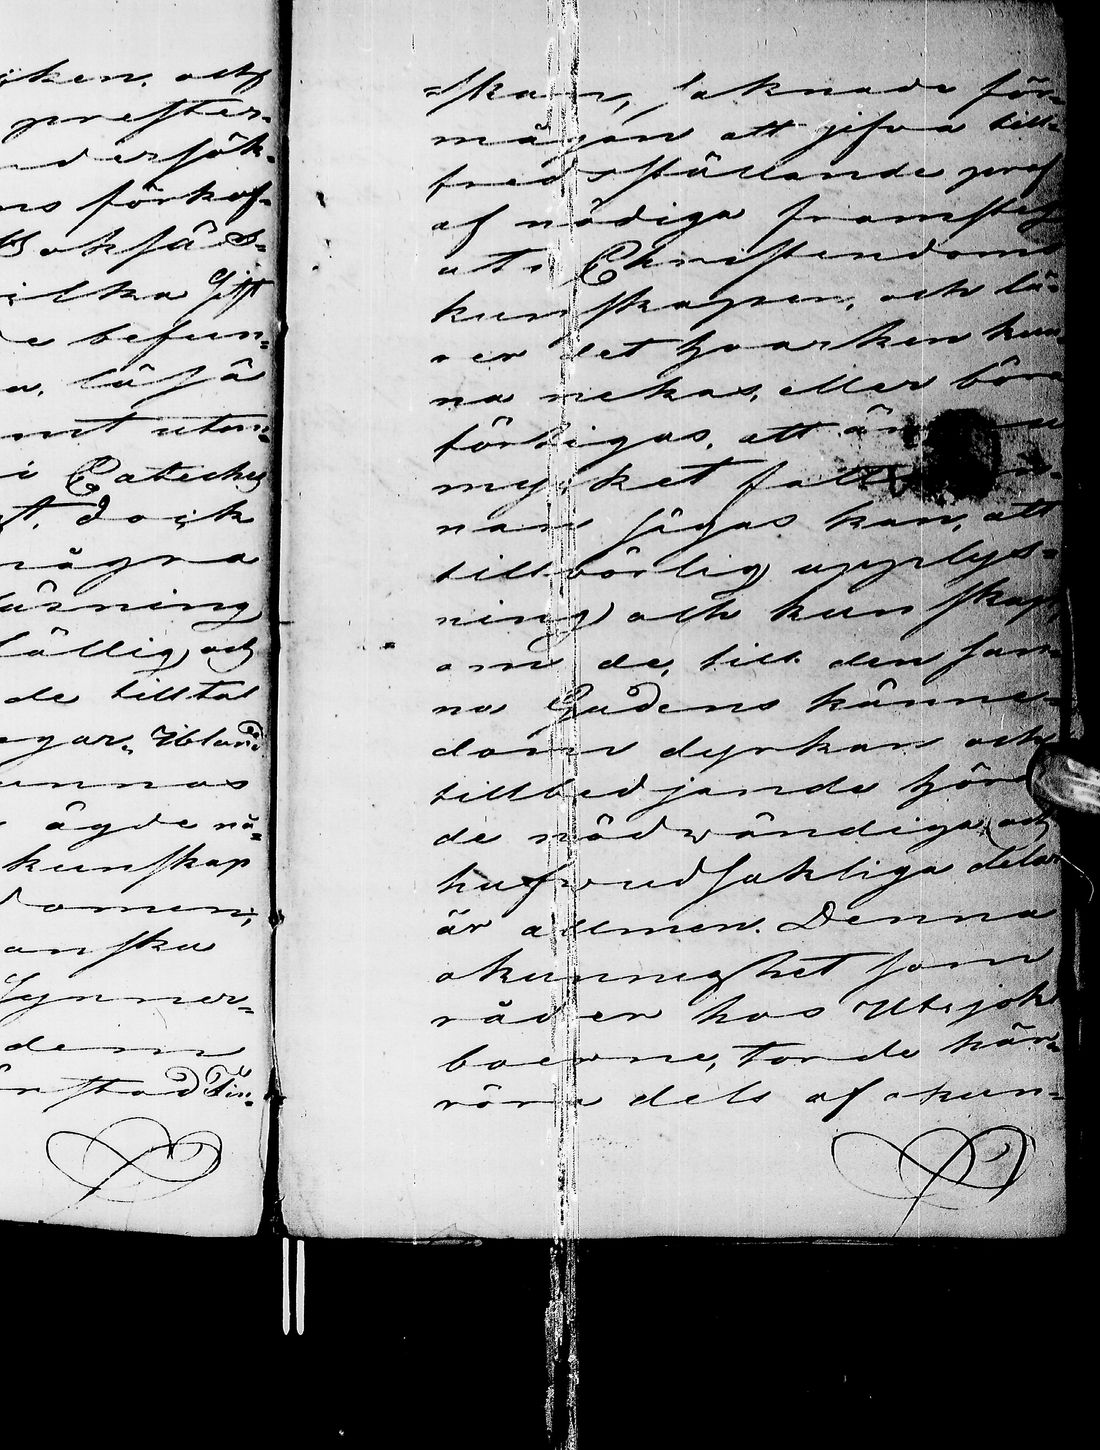 iken. och
prester-
ndersök-
ns förkof-
Boksäs-
ilka Gift
de befun-
a, läsa
mt utan-
i Cateches
t. dock
några
läsning
fällig och
de tilltal
gar. Ibland
unnas
ägde nå-
kunskap
domen,
anska
Synner-
dem
stad
=skan, saknade för-
mågan att gifva till-
fredsställande prof
af nödiga framsteg
uti Christendoms
kunskapen, och lä-
rer det hvarken kun-
na nekas, eller böra
förtigas, att än
mycket
nan sägas kan, att
tillbörlig upplys-
ning och kunskap,
om de, till den san-
na Gudens känne-
dom dyrkan och
tillbedjande höran
de nödwändiga och
hufwudsakliga delar
är allmen. Denna
okunnighet som
råder hos Utsjok
boerne, torde här-
röra dels af okun-